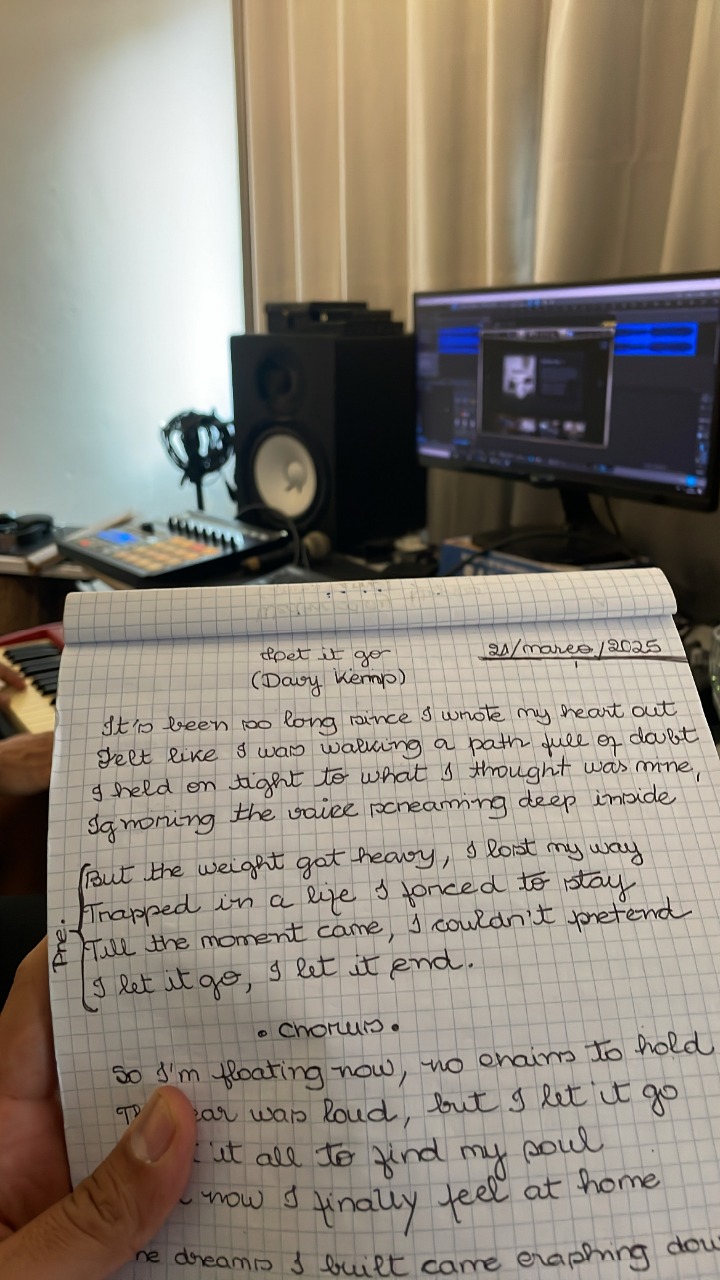 Let it go
21/março/2025
(Davy Kemp)
It's been so long since I wrote my heart out
Felt like I was walking a path full of doubt
I held on tight to what I thought was mine,
Ignoring the voice screaming deep inside
Pre.
But the weight got heavy, I lost my way
Trapped in a life I forced to stay
Till the moment came, I couldn't pretend
I let it go, I let it end.
• Chorus •
So I'm floating now, no chains to hold
was loud, but I let it go
it all to find my soul
now I finally feel at home
dreams I built came crashing